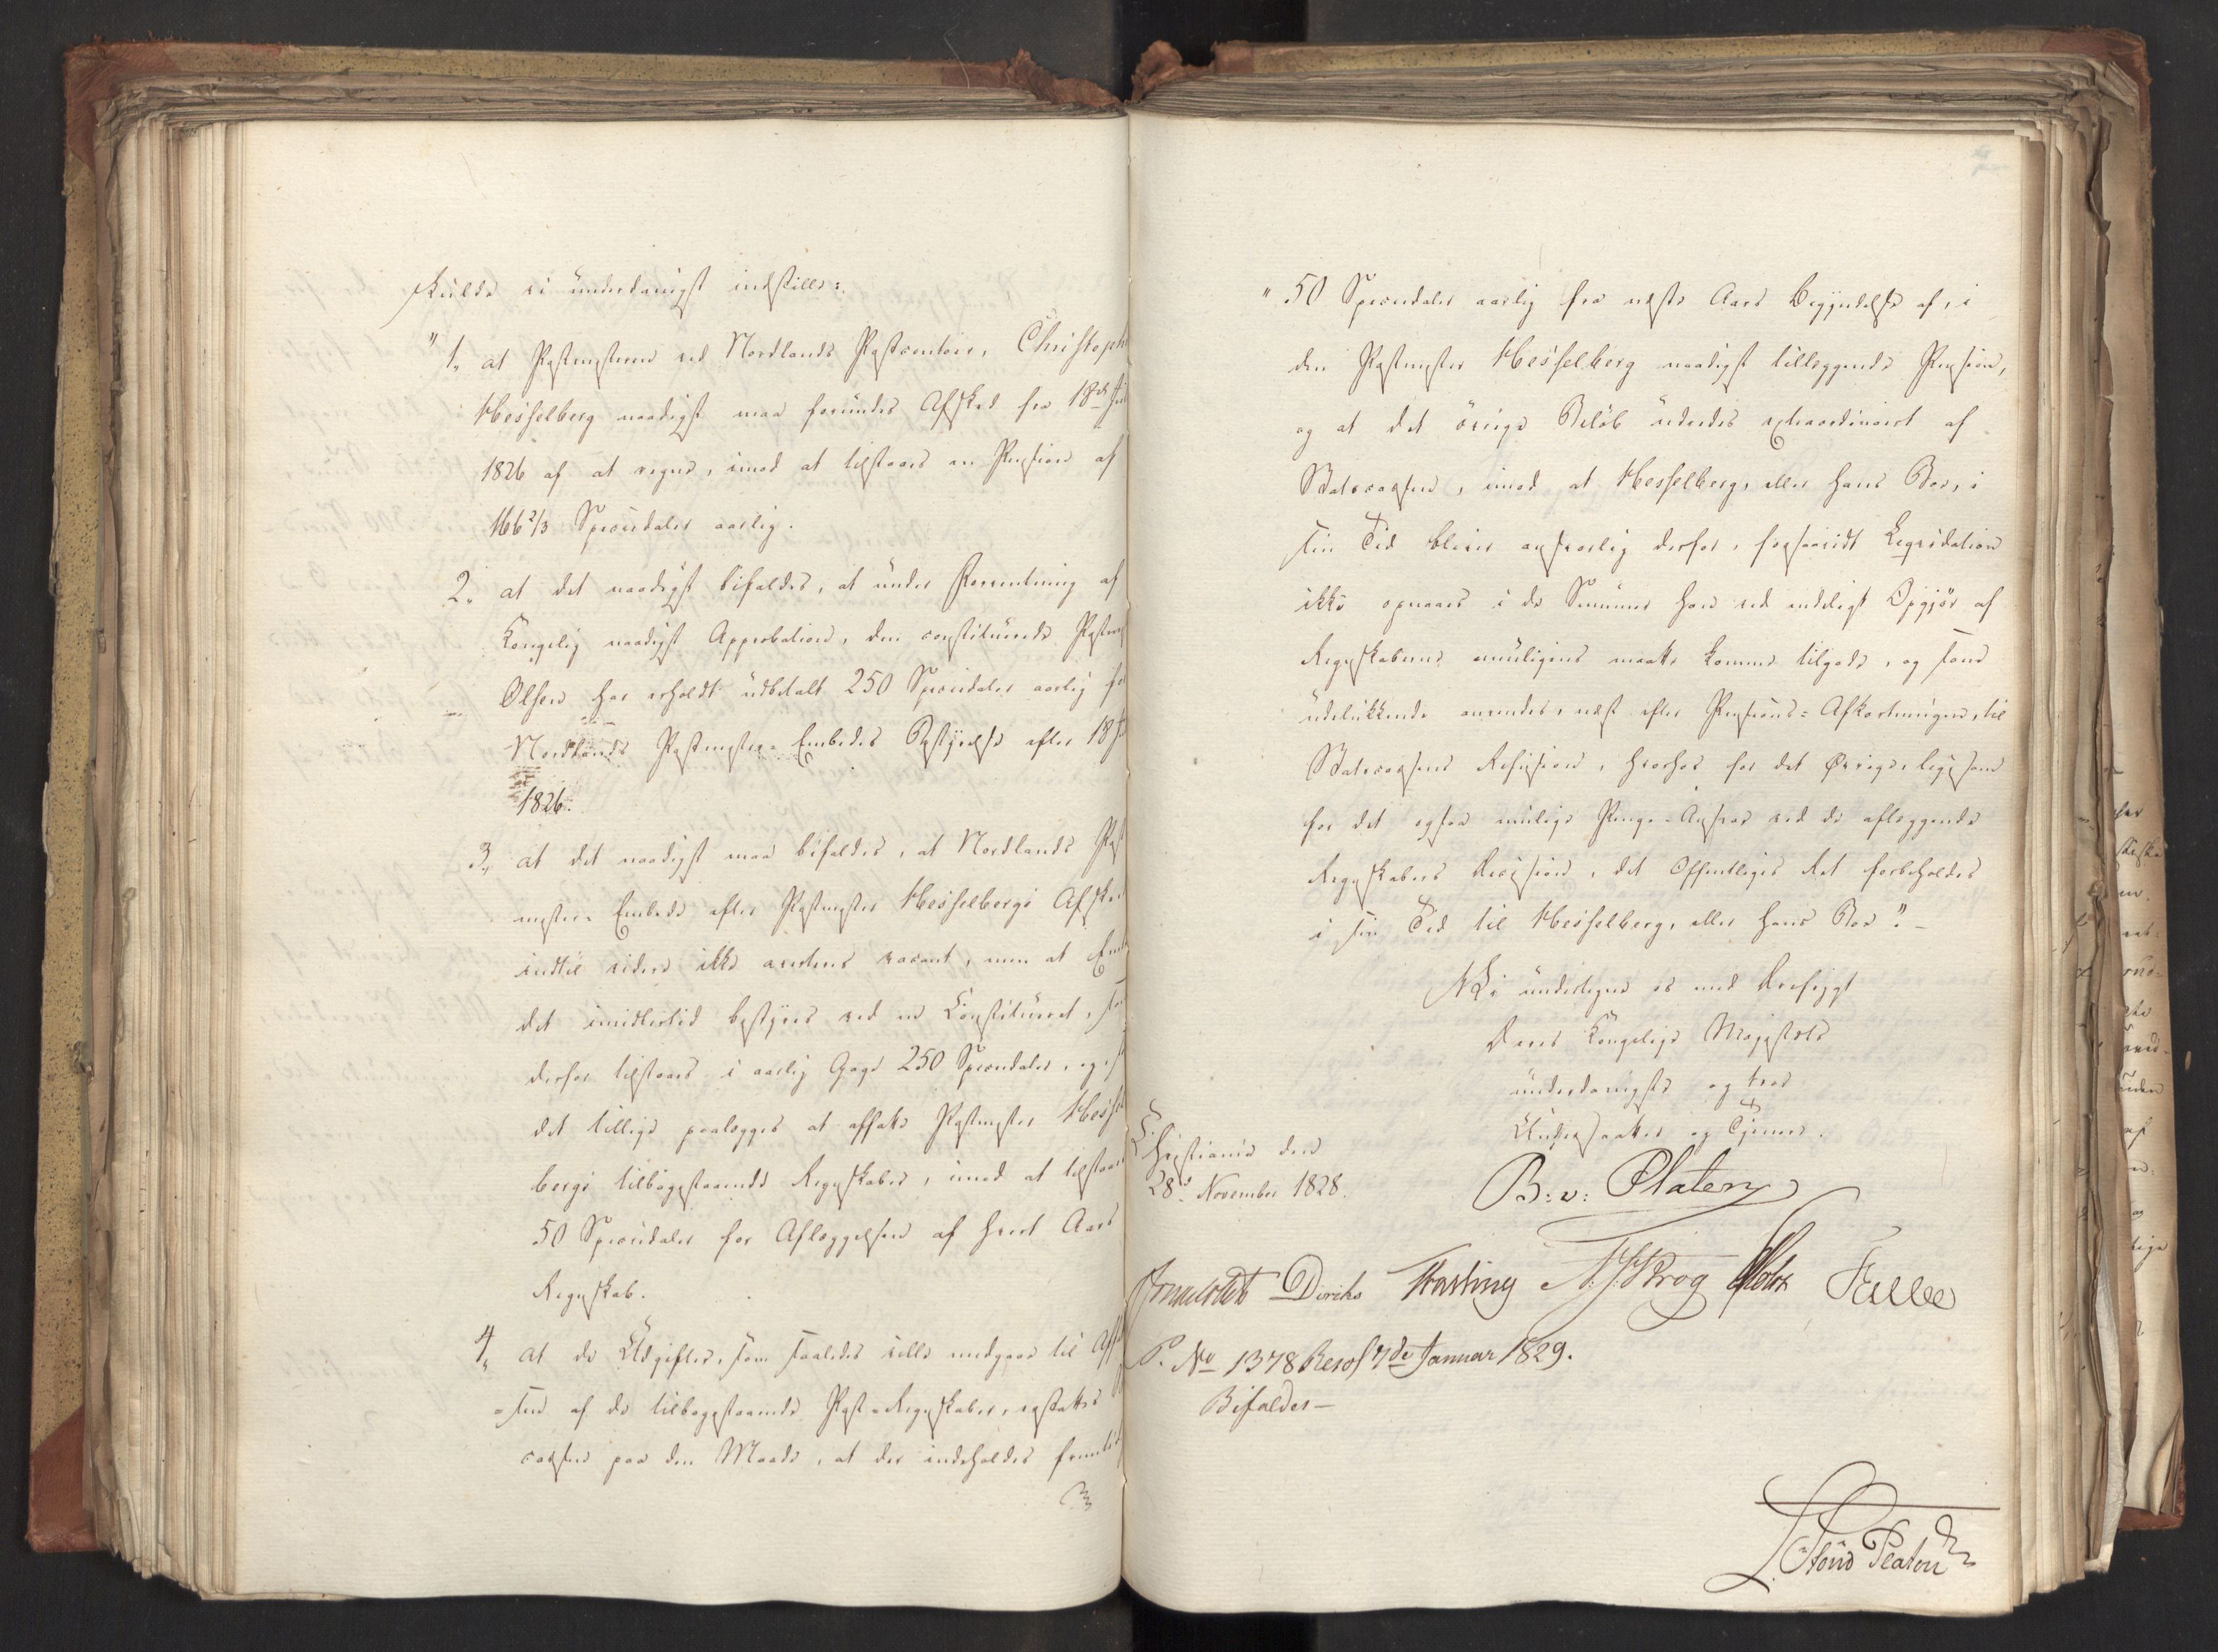 skulde vi underdanigst indstille:
"1, at Postmesteren ved Nordlands Postcontoir, Christoph
Hesselberg naadigst maa forundes Afsked fra 18de
1826 af at regne, imod at tilstaaes en Pension af
166 2/3 Speciedaler aarlig.
2, at det naadigst bifaldes, at under Forventning af
Kongelig naadigst Approbation, den constituerede Postme
Olsen har erholdt udbetalt 250 Speciedaler aarlig for
Nordlands Postmester-Embedes Bestyrelse efter 18
1826.
3, at det naadigst maa bifaldes, at Nordlands Post
mester-Embede efter Postmester Hesselbergs Afsked
indtil videre ikke averteres vacant, men at Em
det imidlertid bestyres ved en Constitueret, som
derfor tilstaaes i aarlig Gage 250 Speciedaler, og
det tillige paalægges at affatte Postmester Hessel
bergs tilbagestaaende Regnskaber, imod at tilstaaes
50 Speciedaler for Aflæggelsen af hvert Aars
Regnskab.
4, at de Udgifter, som saaledes ville medgaae til Aff
telsen af de tilbagestaaende Post-Regnskaber, erstattes
cassen paa den Maade, at der indeholdes fremtidig
"50 Speciedaler aarlig fra næste Aars Begyndelse af, i
den Postmester Hesselberg naadigst tillæggende Pension,
og at det övrige Belöb udredes extraordinairt af
Statscassen, imod at Hesselberg, eller hans Boe, i
sin Tid bliver ansvarlig derfor, forsaavidt Liqvidation
ikke opnaaes i de Summer han ved endeligt Opgjör af
Regnskaberne muligens maatte komme tilgode, og som
udelukkende anvendes, næst efter Pensions-Afkortningen, til
Statscassens Refusion, hvorhos for det Øvrige, ligesom
for det ogsaa mulige Penge-Ansvar ved de aflæggende
Regnskabers Revision, det Offentliges Ret forbeholdes
i sin Tid til Hesselberg, eller hans Boe".
Vi undertegne os med Ærefrygt
Deres Kongelige Majestæts
underdanigste og troe
Undersaatter og Tjenere.
Christiania den
28d November 1828.
B: v: Platen
Sommerfeldt Diriks Fasting N. J. Krog Holst Falbe
P. No 1378 Resol 7de Januar 1829.
Bifaldes
Platen